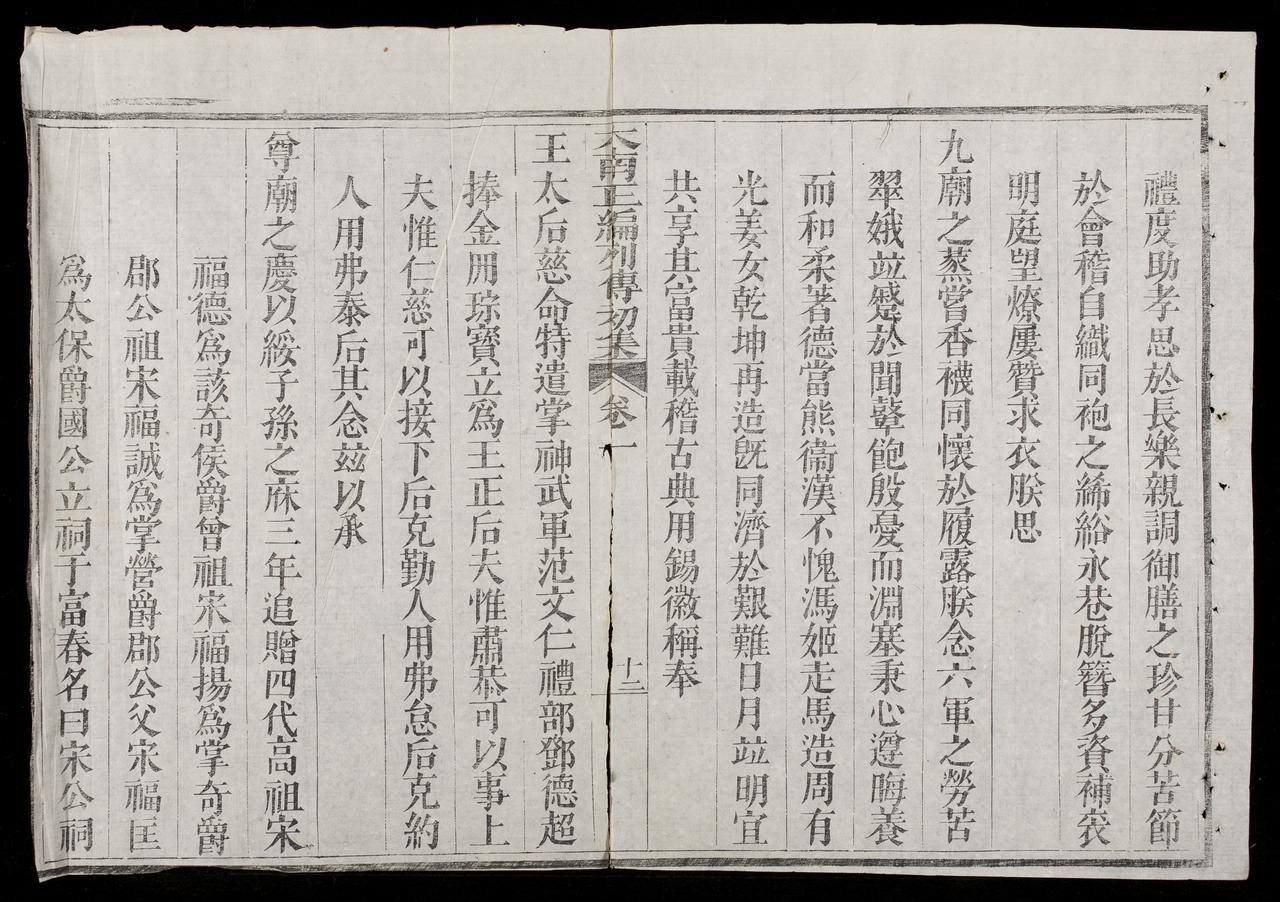 禮度助孝思於長樂親調御膳之珍甘分苦節
於會稽自織同袍之絺綌永巷脫簪多資補袞
明庭望燎屢贊求衣朕思
九廟之蒸嘗香襪同懷於履露朕念六軍之勞苦
翠娥竝蹙於聞鼙飽殷憂而淵塞秉心遵晦養
而和柔著德當熊衞漢不愧馮姬走馬造周有
光姜女乾坤再造旣同濟於艱難日月竝明宜
共享其富貴載稽古典用錫徽稱奉
大南正編列傳初集 卷一 十二
王太后慈命特遣掌神武軍范文仁禮部鄧德超
捧金冊琮寶立爲王正后夫惟肅恭可以事上
夫惟仁慈可以接下后克勤人用弗怠后克約
人用弗泰后其念玆以承
尊廟之慶以綏子孫之庥三年追贈四代高祖宋
福德爲該奇侯爵曾祖宋福揚爲掌奇爵
郡公祖宋福誠爲掌營爵郡公父宋福匡
爲太保爵國公立祠于富春名曰宋公祠